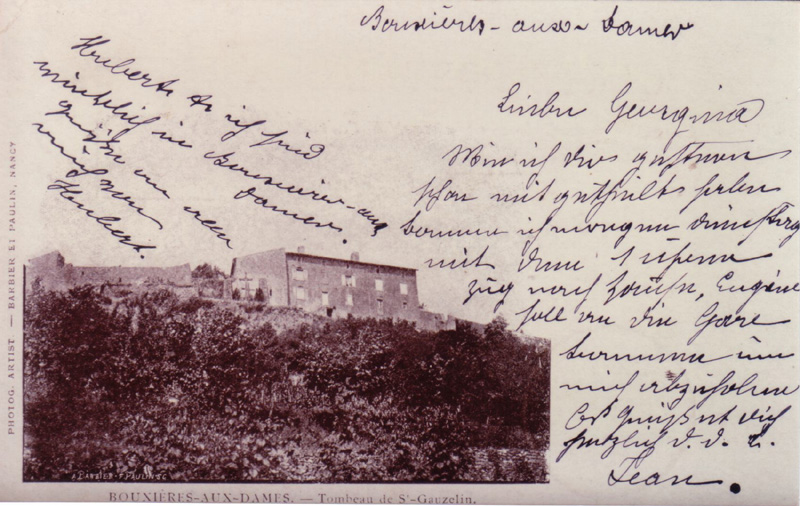 Bouxières-aux-Dames
Liebe Georgina
Wie ich dir gestern
schon mitgetheilt habe
komme ich morgen Dienstag
mit dem 1
Zug nach Hause, Eugène
soll an die Gare
kommen um
mich abzuholen
Es grüsst dich
herzlich d. d. l.
Jean.
Hubert & ich sind
wirklich in Bouxières-aux
Dames.
grüße an
Hubert.
PHOTOG. ARTIST. — BARBIER ET PAULIN, NANCY
A. BARBIER - F. PAULIN SC
BOUXIÈRES-AUX-DAMES. — Tombeau de St-Gauzelin.